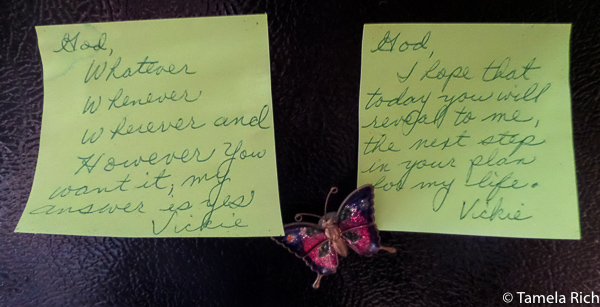 God,
Whatever
Whenever
Wherever and
However You
want it, my
answer is yes
Vickie
God,
I hope that
today you will
reveal to me,
the next step
in your plan
for my life.
Vickie
© Tamela Rich